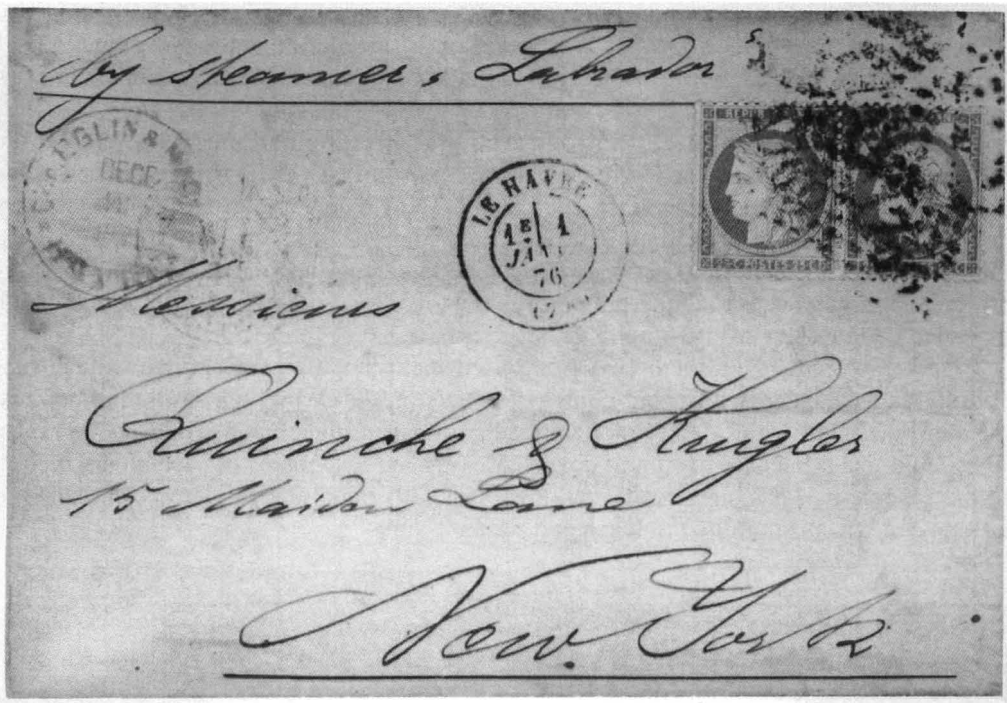 by steamer, Labrador
GLIN &
DECE
LE HAVRE
1E 1
JANV
76
REPUB
25 C POSTES 25 C
Messieurs
Quinche & Krugler
15 Maiden Lane
New York